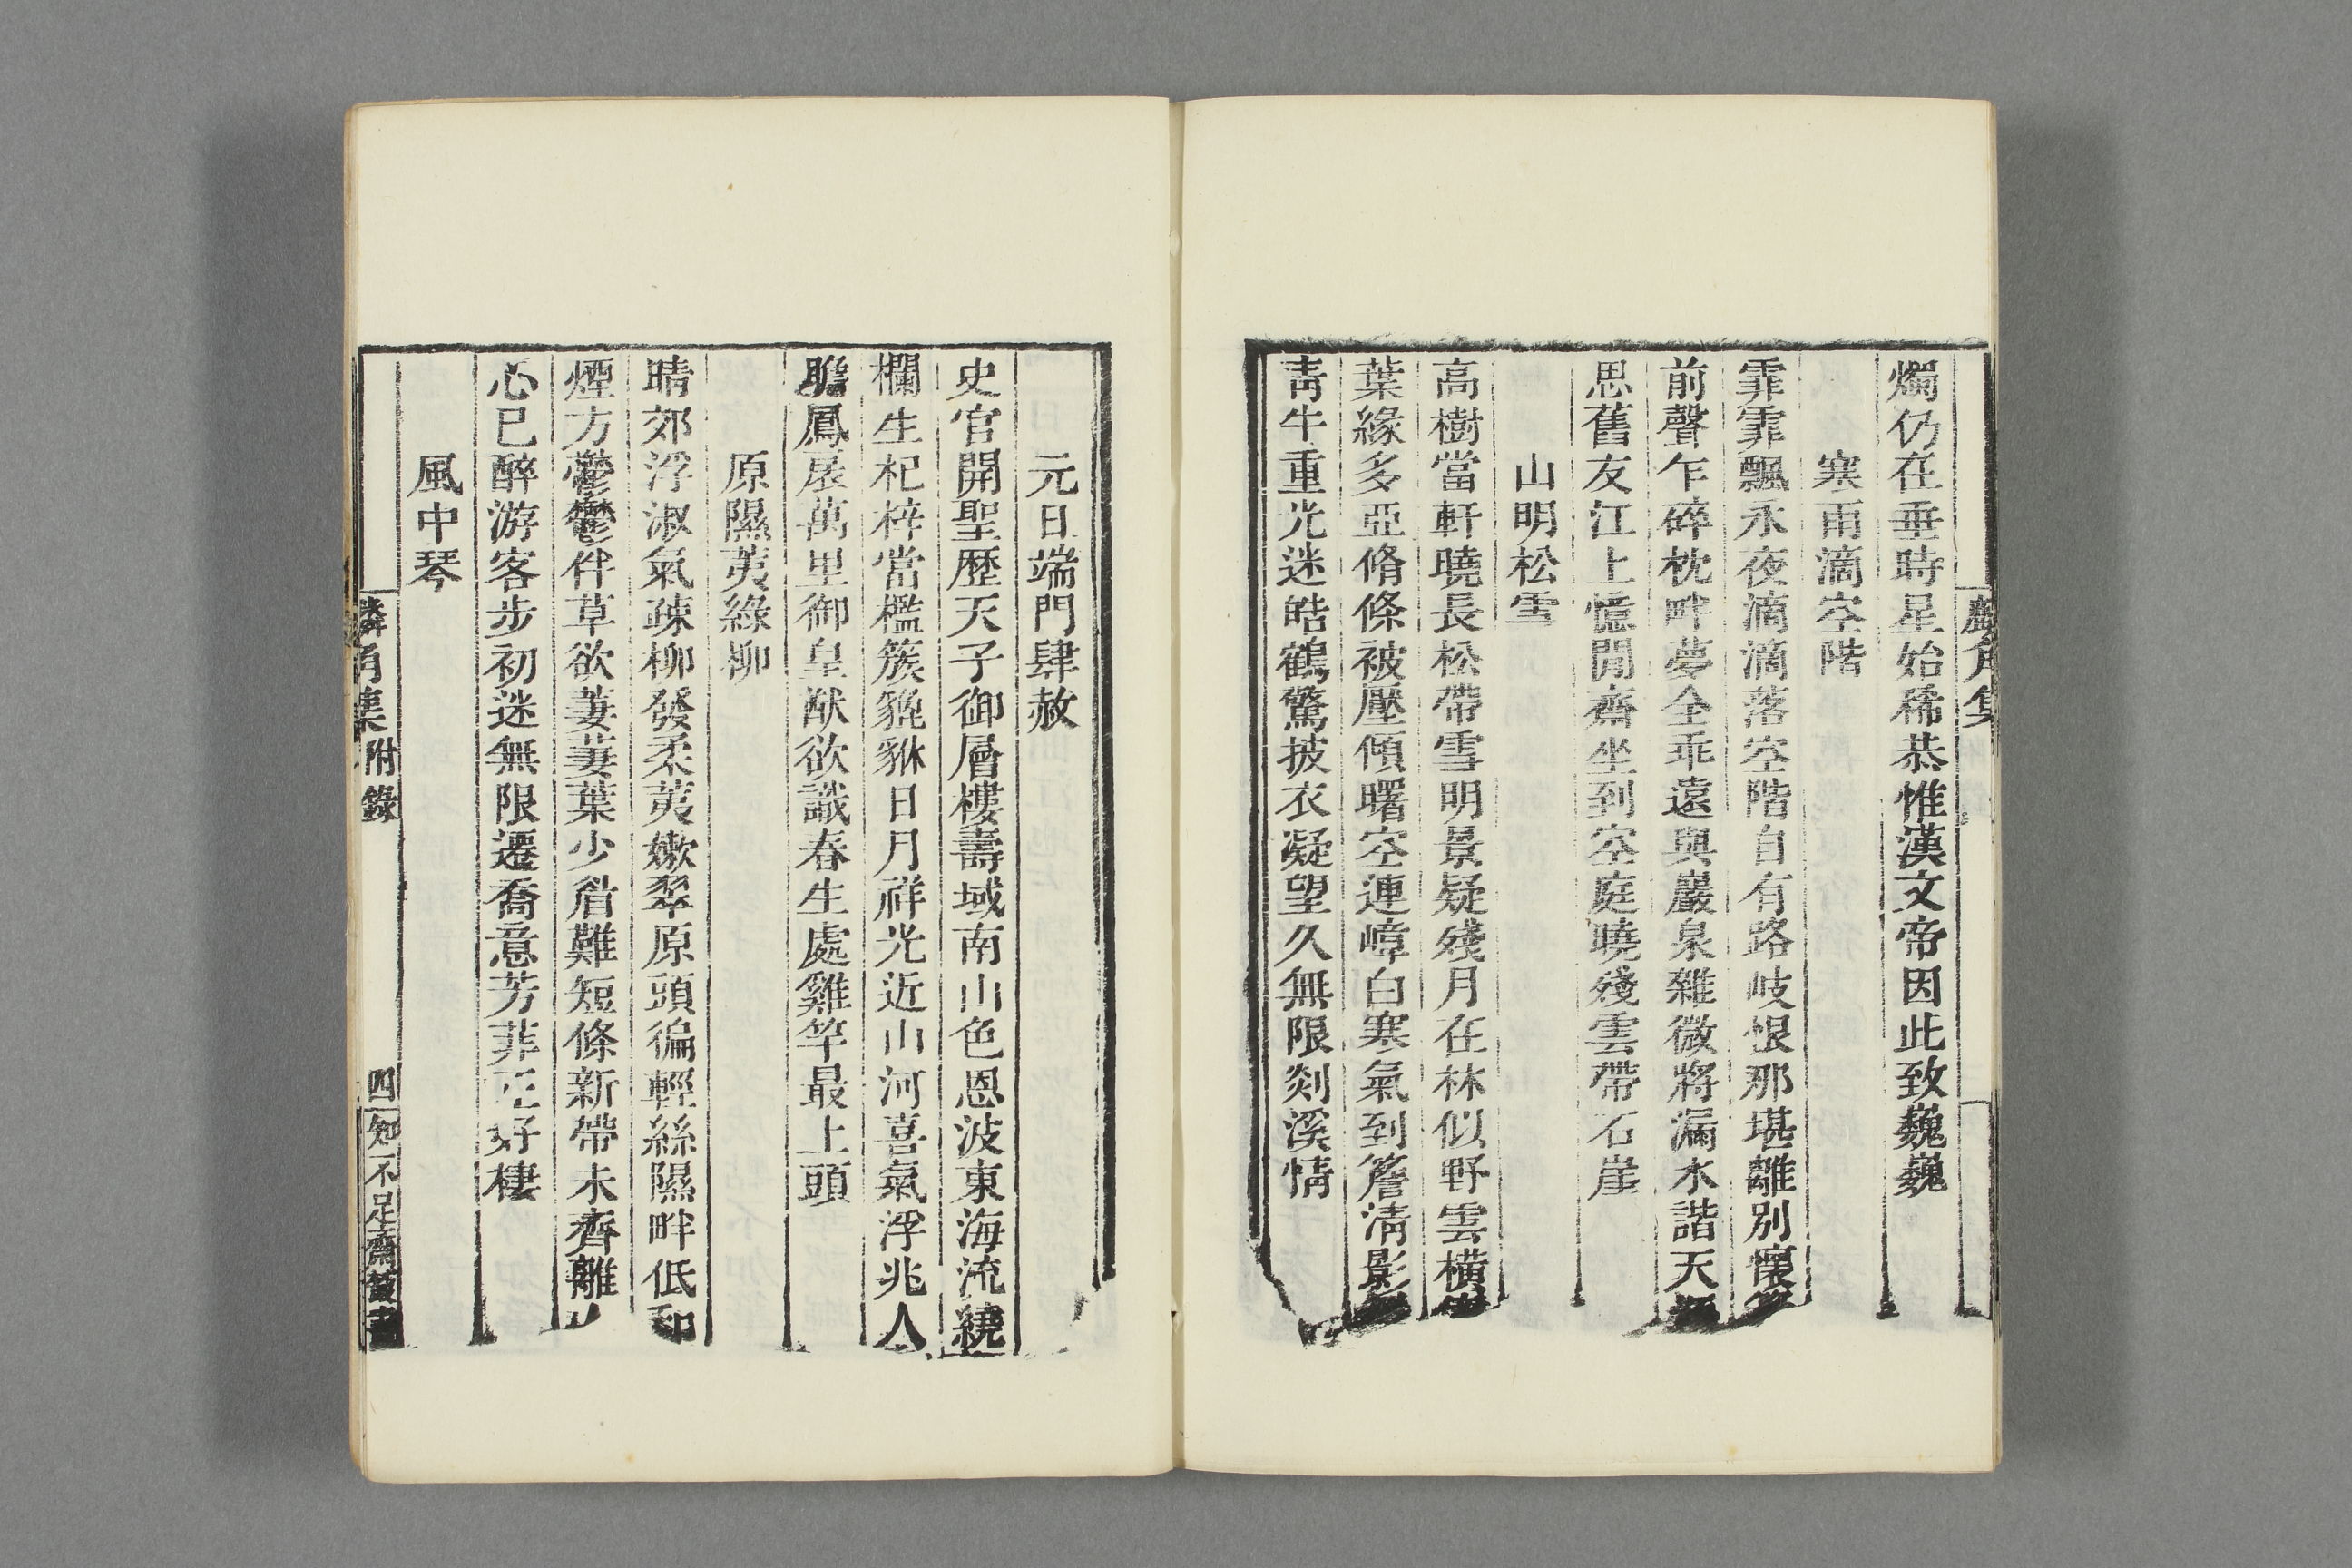 麟角集
燭仍在垂時星始稀恭惟漢文帝因此致巍巍
寒雨滴空階
霏霏飄永夜滴滴落空階自有路岐恨那堪離別懷
前聲乍碎枕畔夢全乖遠與巖泉雜微將漏水諧天
思舊友江上憶閒齋坐到空庭曉殘雲帶石崖
山明松雪
高樹當軒曉長松帶雪明景疑殘月在林似野雲橫
葉緣多亞脩條被壓傾曙空連嶂白寒氣到簷淸影
靑牛重光迷皓鶴驚披衣凝望久無限剡溪情
元日端門肆赦
史官開聖歷天子御層樓壽域南山色恩波東海流繞
欄生杞梓當檻簇貔貅日月祥光近山河喜氣浮兆人
瞻鳳扆萬里御皇猷欲識春生處雞竿最上頭
原隰荑綠柳
晴郊浮淑氣疎柳發柔荑嫰翠原頭徧輕絲隰畔低
煙方鬱鬱伴草欲萋萋葉少眉難短條新帶未齊離
心已醉游客步初迷無限遷喬意芳菲正好棲
風中琴
麟角集附錄
四
知不足齋叢書